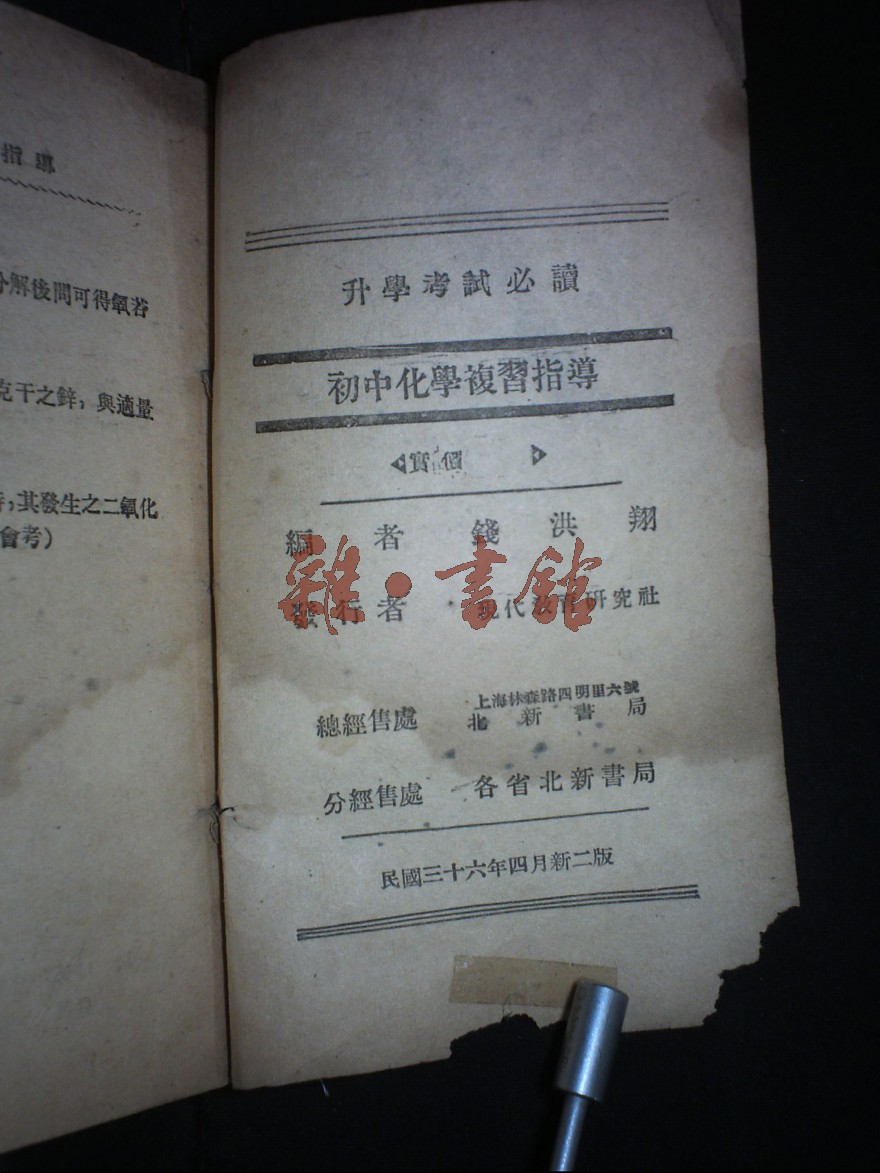 指導
分解後問可得氧若
克干之鋅，與適量
其發生之二氧化
會考）
升學考試必讀
初中化學複習指導
實價
編者 錢洪翔
發行者 現代教育研究社
雜·書館
總經售處 上海林森路四明里六號
北新書局
分經售處 各省北新書局
民國三十六年四月新二版